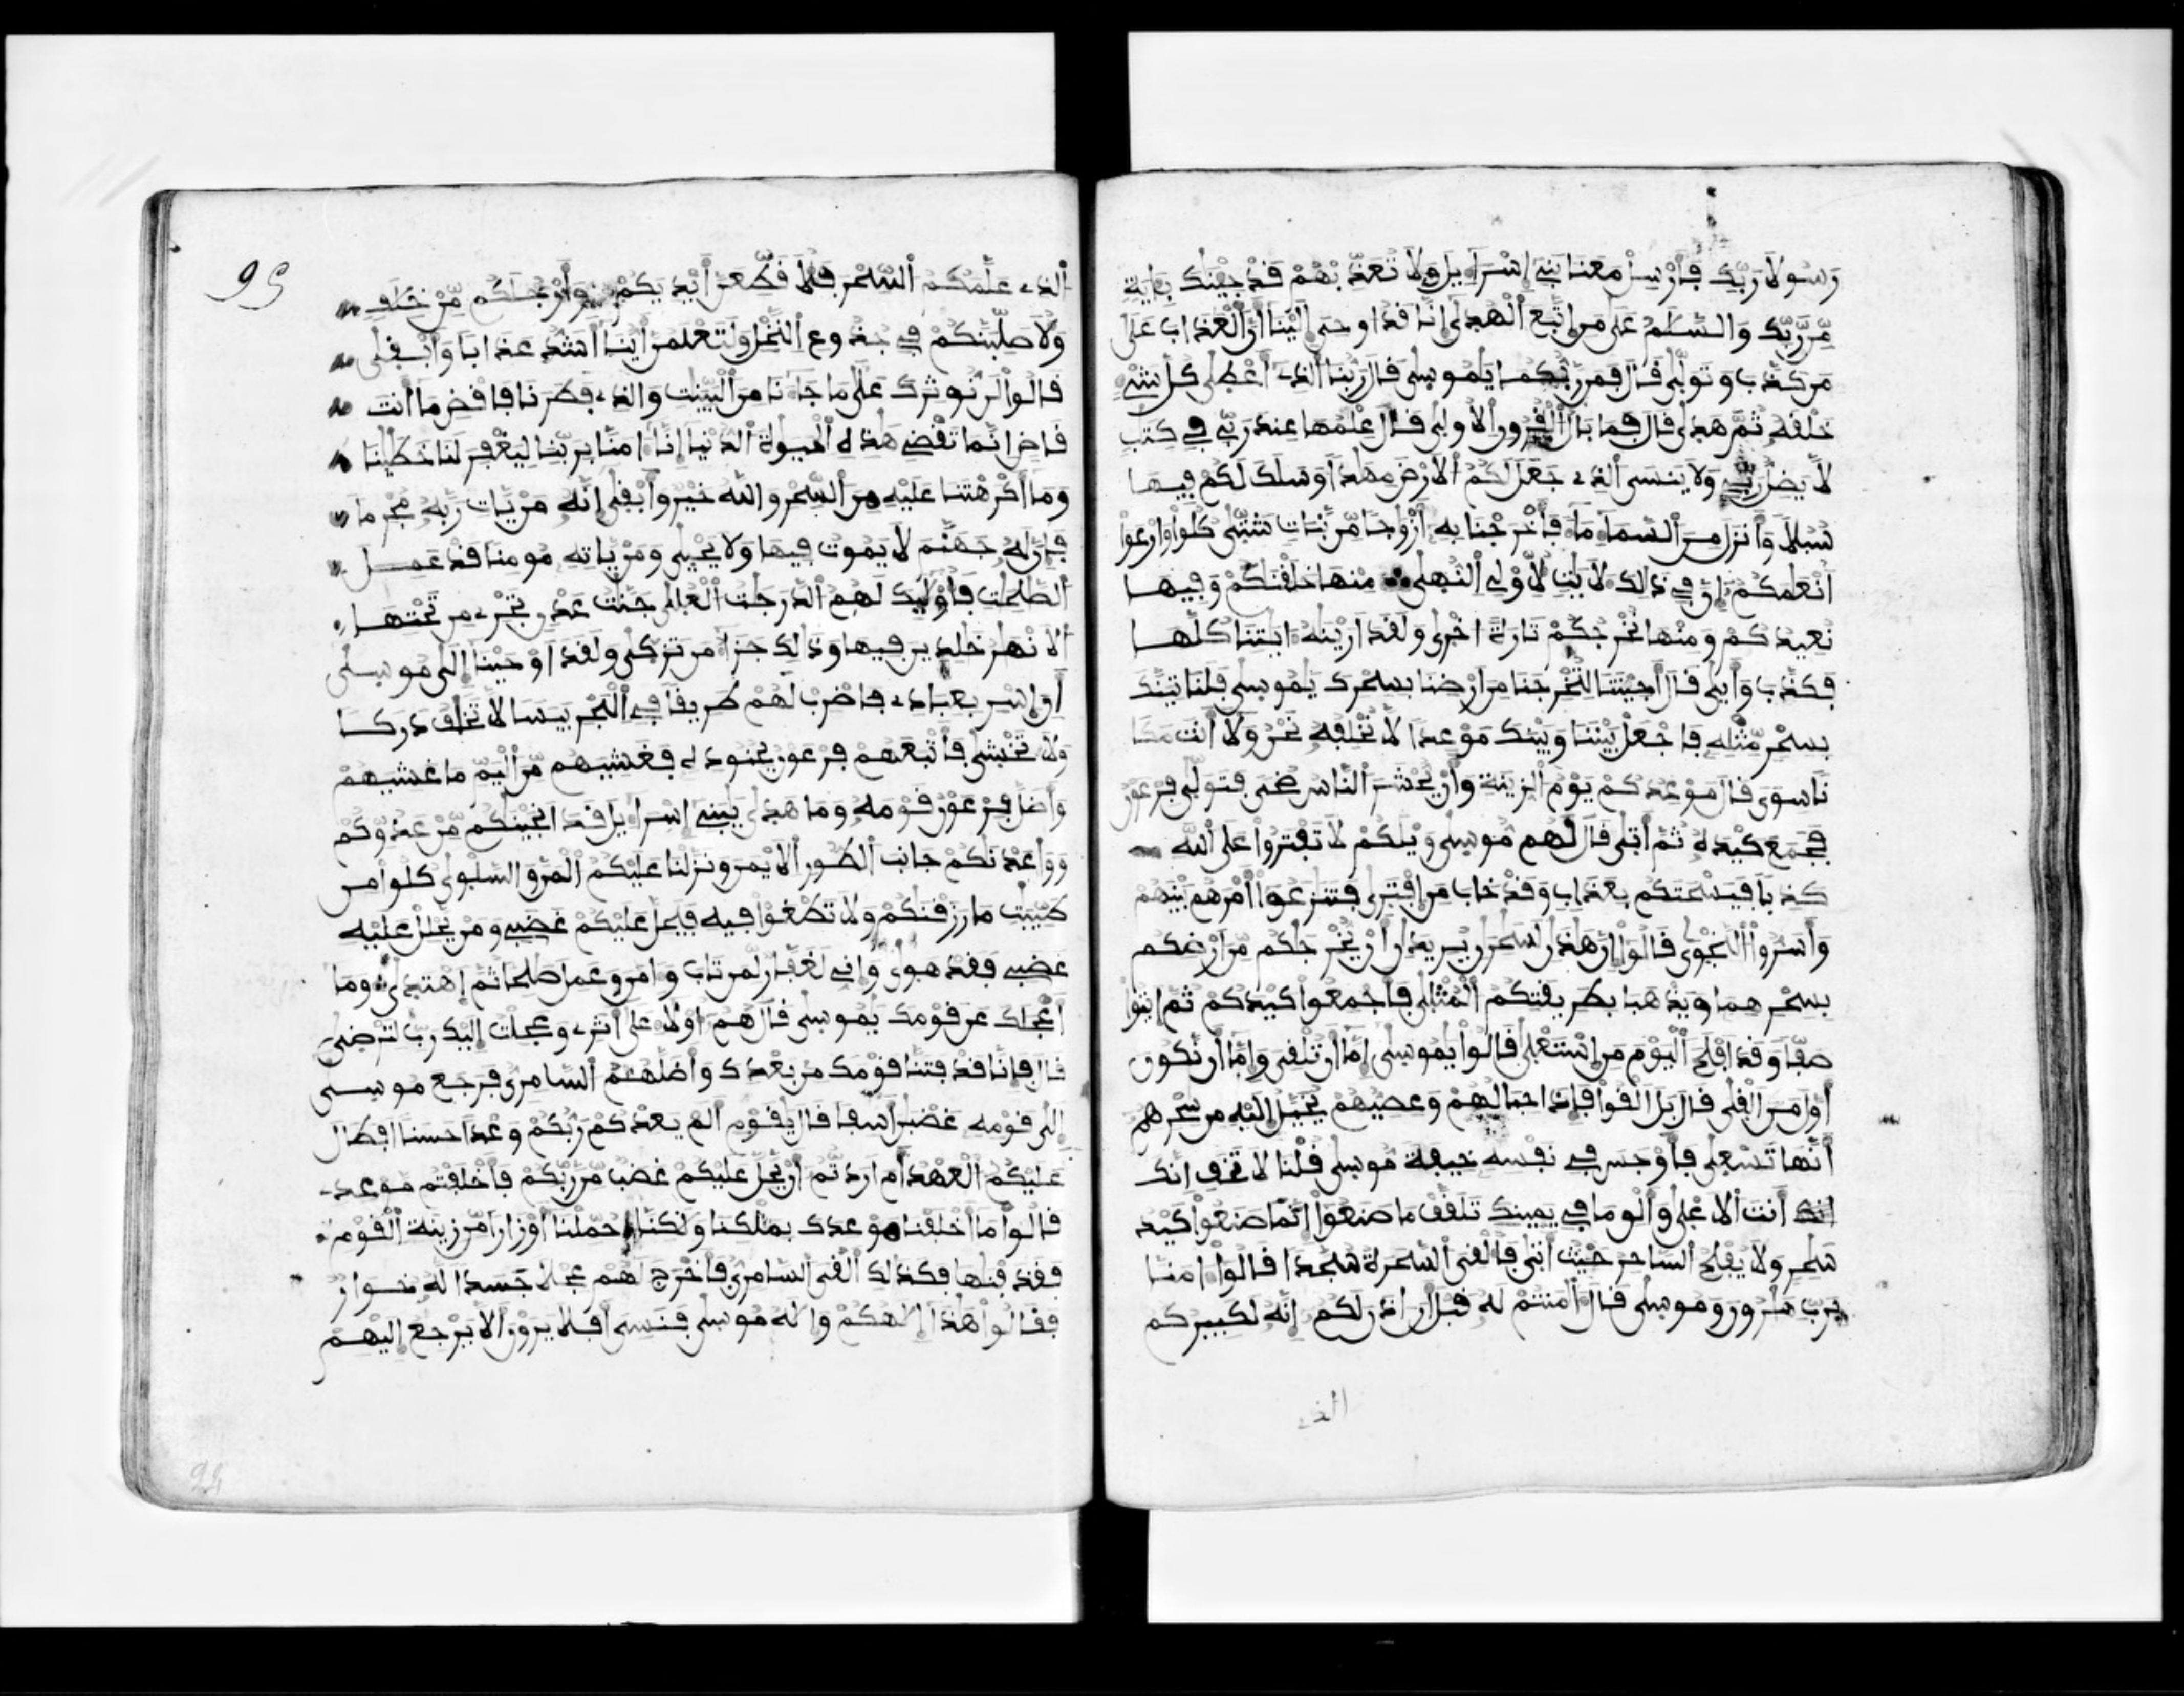 رسولا ربك فارسل معنا بنے اسراءيل ولا تعذبهم قد جينك بءاية
من ربك والسلم على من اتبع الهدى انا قد اوحى الينا ان العذاب على
من كذب وتولى قال فمن ربكما يموسى قال ربنا الذے اعطى كل شے
خلقه ثم هدى قال فما بال القرون الاولى قال علمها عند ربے فے كتب
لا يضل ربے ولا ينسى الذے جعل لكم الارض مهدا وسلك لكم فيها
سبلا وانزل من السماء ماء فاخرجنا به أزواجا من نبات شتى كلوا وارعوا
انعمكم ان فے ذالك لايت لاولے النهى منها خلقنكم وفيها
نعيدكم ومنها نخرجكم تارة اخرى ولقد ارينه ايتنا كلها
فكذب وأبى قال أجيتنا لتخرجنا من ارضنا بسحرك يموسى فلناتينك
بسحر مثله فاجعل بيننا وبينك موعدا لا نخلفه نحن ولا أنت مكا
نا سوى قال موعدكم يوم الزينة وأن يحشر الناس ضحى فتولى فرعون
فجمع كيده ثم أتى قال لهم موسى ويلكم لا تفتروا على الله
كذبا فيسحتكم بعذاب وقد خاب من افترى فتنزعوا أمرهم بينهم
وأسروا النجوى قالوا ان هذن لسحرن يريدن أن يخرجكم من ارضكم
بسحرهما ويذهبا بطريقتكم المثلى فاجمعوا كيدكم ثم ايتوا
صفا وقد افلح اليوم من استعلى قالوا يموسى إما أن تلقى وإما أن نكون
أول من القى قال بل القوا فإذا حبالهم وعصيهم يخيل اليه من سحرهم
أنها تسعى فأوجس فے نفسه خيفة موسى قلنا لا تخف انك
انك أنت ألاعلى وألق ما فے يمينك تلقف ما صنعوا انما صنعوا كيد
سحر ولا يفلح الساحر حيث أتى فألقى السحرة سجدا قالوا ءامنا
برب هرون وموسى قال أمنتم له قبل ان اذن لكم إنه لكبيركم
الذے
95
ألذے علمكم ألسحر فلأقطعن أيديكم وأرجلكم من خلف
ولأصلبنكم فے جذوع ألنخل ولتعلمن أينا أشد عذابا وأبقى
قالوا لن نوثرك على ما جاءنا من البينت والذے فطرنا فاقض ما أنت
قاض انما تقضے هذه الحيوة الدنيا إنا ءامنا بربنا ليغفر لنا خطينا
وما أكرهتنا عليه من السحر والله خير وأبقى إنه من يات ربه مجرما
فإن له جهنم لا يموت فيها ولا يحيى ومن ياته مومنا قد عمل
الصلحت فأوليك لهم الدرجت العلى جنت عدن تجرے من تحتها
ألانهر خلدين فيها وذالك جزاء من تزكى ولقد اوحينا إلى موسى
أن اسر بعبادے فاضرب لهم طريقا فے البحر يبسا لا تخف دركا
ولا تخشى فأتبعهم فرعون بجنوده فغشيهم من أليم ما غشيهم
وأضل فرعون قومه وما هدى يبنے إسراءيل قد انجينكم من عدوكم
ووعدنكم جانب ألطور ألايمن ونزلنا عليكم المن والسلوى كلوا من
طيبت ما رزقنكم ولا تطغوا فيه فيحل عليكم غضبے ومن يحلل عليه
غضبے فقد هوى وإنے لغفار لمن تاب وءامن وعمل صلحا ثم اهتدى وما
أعجلك عن قومك يموسى قال هم اولاء على أثرے وعجلت إليك رب لترضى
قال فإنا قد فتنا قومك من بعدك وأضلهم ألسامرى فرجع موسى
إلى قومه غضبن أسفا قال يقوم ألم يعدكم ربكم وعدا حسنا افطال
عليكم ألعهد أم اردتم أن يحل عليكم غضب من ربكم فأخلفتم موعدے
قالوا ما أخلفنا موعدك بملكنا ولكنا حملنا أوزارا من زينة القوم
فقذفنها فكذلك ألقى السامرى فأخرج لهم عجلا جسدا له خوار
فقالوا هذا إلهكم وإله موسى فنسى أفلا يرون ألا يرجع إليهم